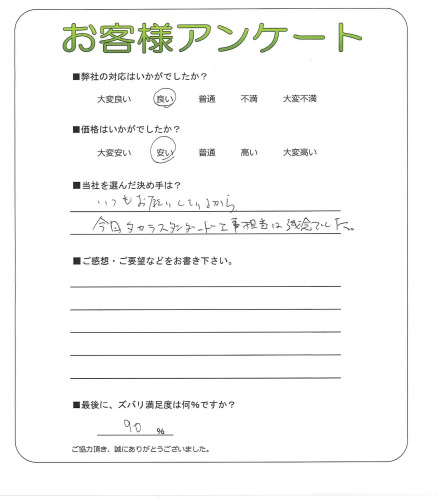 お客様アンケート
■弊社の対応はいかがでしたか?
大変良い 良い 普通 不満 大変不満
■価格はいかがでしたか?
大変安い 安い 普通 高い 大変高い
■当社を選んだ決め手は?
いつもお願いしているから
今回タカラスタンダード工事担当は残念でした。
■ご感想・ご要望などをお書き下さい。
■最後に、ズバリ満足度は何%ですか?
90 %
ご協力頂き、誠にありがとうございました。